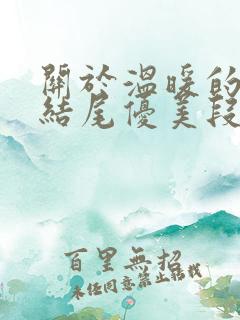 關於溫暖的
結尾優美段
百里無招
未經同意禁止轉載